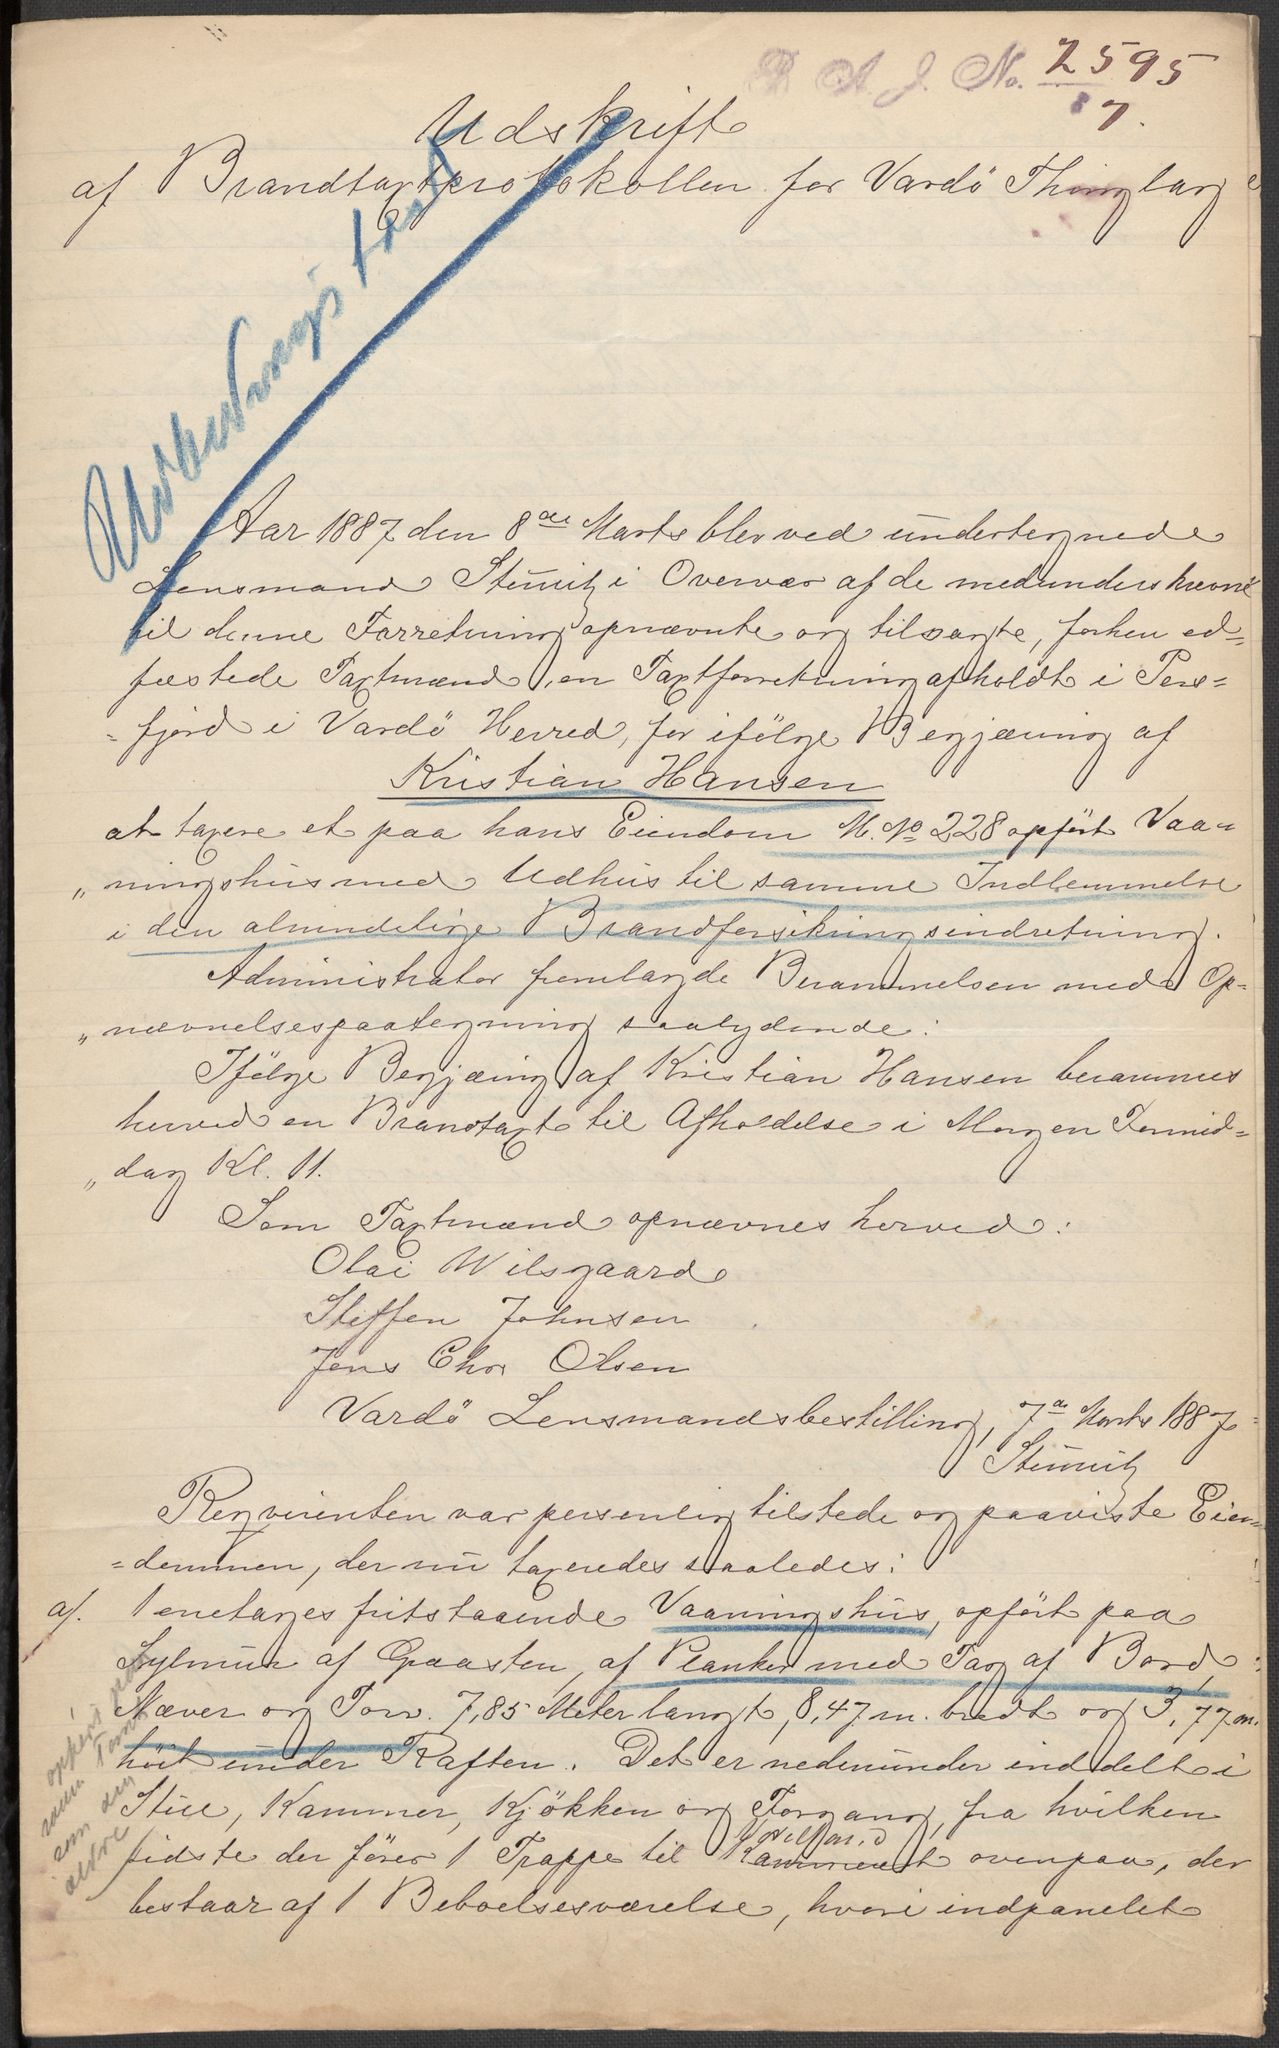 B. A. J. No. 2595
87.
Udskrift
af Brandtaxtprotokollen for Vardö Thinglag
Aar 1887 den 8de Marts blev ved undertegnede
Lensmand Steinitz i Overvær af de medunderskrevne
til denne Forretning opnævnte og tilsagte, forhen ed=
fæstede Taxtmænd, en Taxtforretning afholdt i Pers=
=fjord i Vardö Herred, for ifölge Begjæring af
Kristian Hansen
at taxere et paa hans Eiendom M. No 228 opfört Vaa=
„ningshus med Udhus til samme Indlemmelse
i den almindelige Brandforsikringsindretning.
Administrator fremlagde Berammelsen med Op=
„nævnelsespaategning saalydende:
Ifölge Begjæring af Kristian Hansen berammes
herved en Brandtaxt til Afholdelse i Morgen Formid=
„dag Kl. 11.
Som Taxtmænd opnævnes herved:
Olai Wilsgaard
Steffen Johnsen
Jens Chr Olsen
Vardö Lensmandsbestilling, 7de Marts 1887
Steinitz
Reqvirenten var personlig tilstede og paaviste Eien=
=dommen, der nu taxeredes saaledes:
a). 1 enetages fritstaaende Vaaningshus, opfört paa
Sylmur af Graasten, af Planker med Tag af Bord,
Næver og Torv. 7,85 Meter langt, 8,47 m. bredt og 3,77 m.
höit under Raften. Det er nedenunder inddelt i
Stue, Kammer, Kjökken og Forgang, fra hvilken
sidste der förer 1 Trappe til ovenpaa, der
bestaar af 1 Beboelsesværelse, hvori indpanelet
opført paa
samme Tomt
som den
ældre